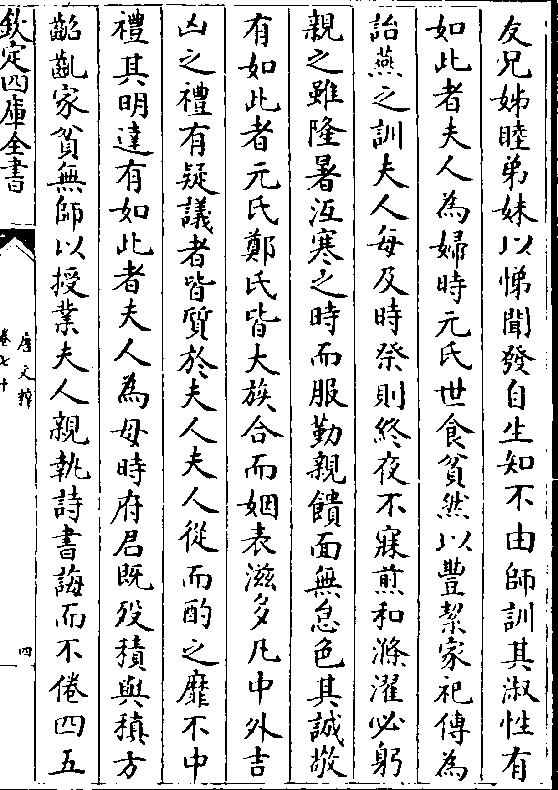 友兄姊睦弟妹以悌聞發自生知不由師訓其淑性有
如此者夫人為婦時元氏世食貧然以豐絜家祀傳為
詒燕之訓夫人每及時祭則終夜不寐煎和滌濯必躬
親之雖隆暑沍寒之時而服勤親饋面無怠色其誠敬
有如此者元氏鄭氏皆大族合而姻表滋多凡中外吉
凶之禮有疑議者皆質於夫人夫人從而酌之靡不中
禮其明達有如此者夫人為母時府君既歿積與稹方
齠齓家貧無師以授業夫人親執詩書誨而不倦四五
欽定四庫全書
唐文粹
卷七十
四